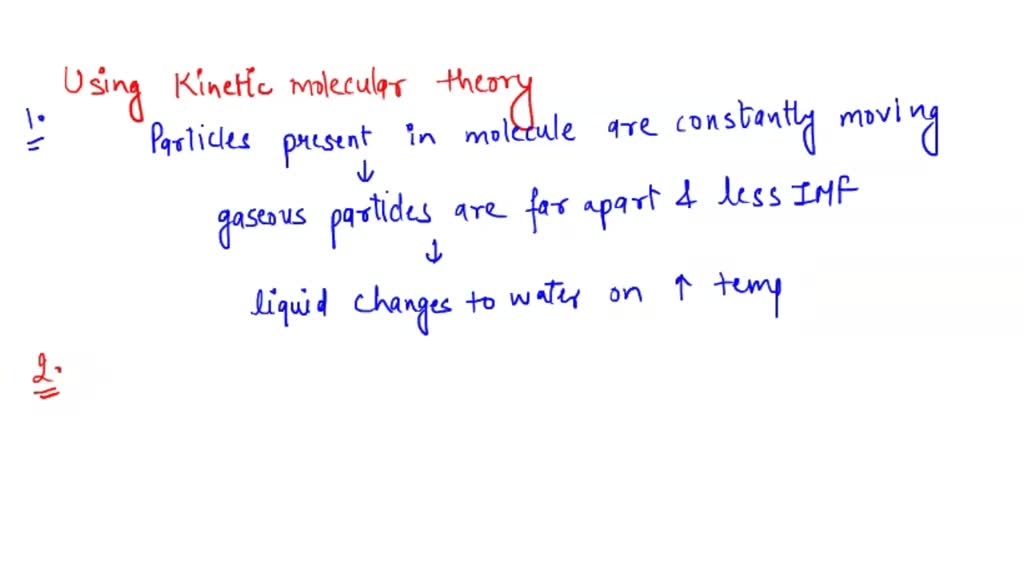 Using Kinetic molecular theory
1. Particles present in molecule are constantly moving
↓
gaseous particles are far apart & less IMF
↓
liquid changes to water on ↑ temp
2.